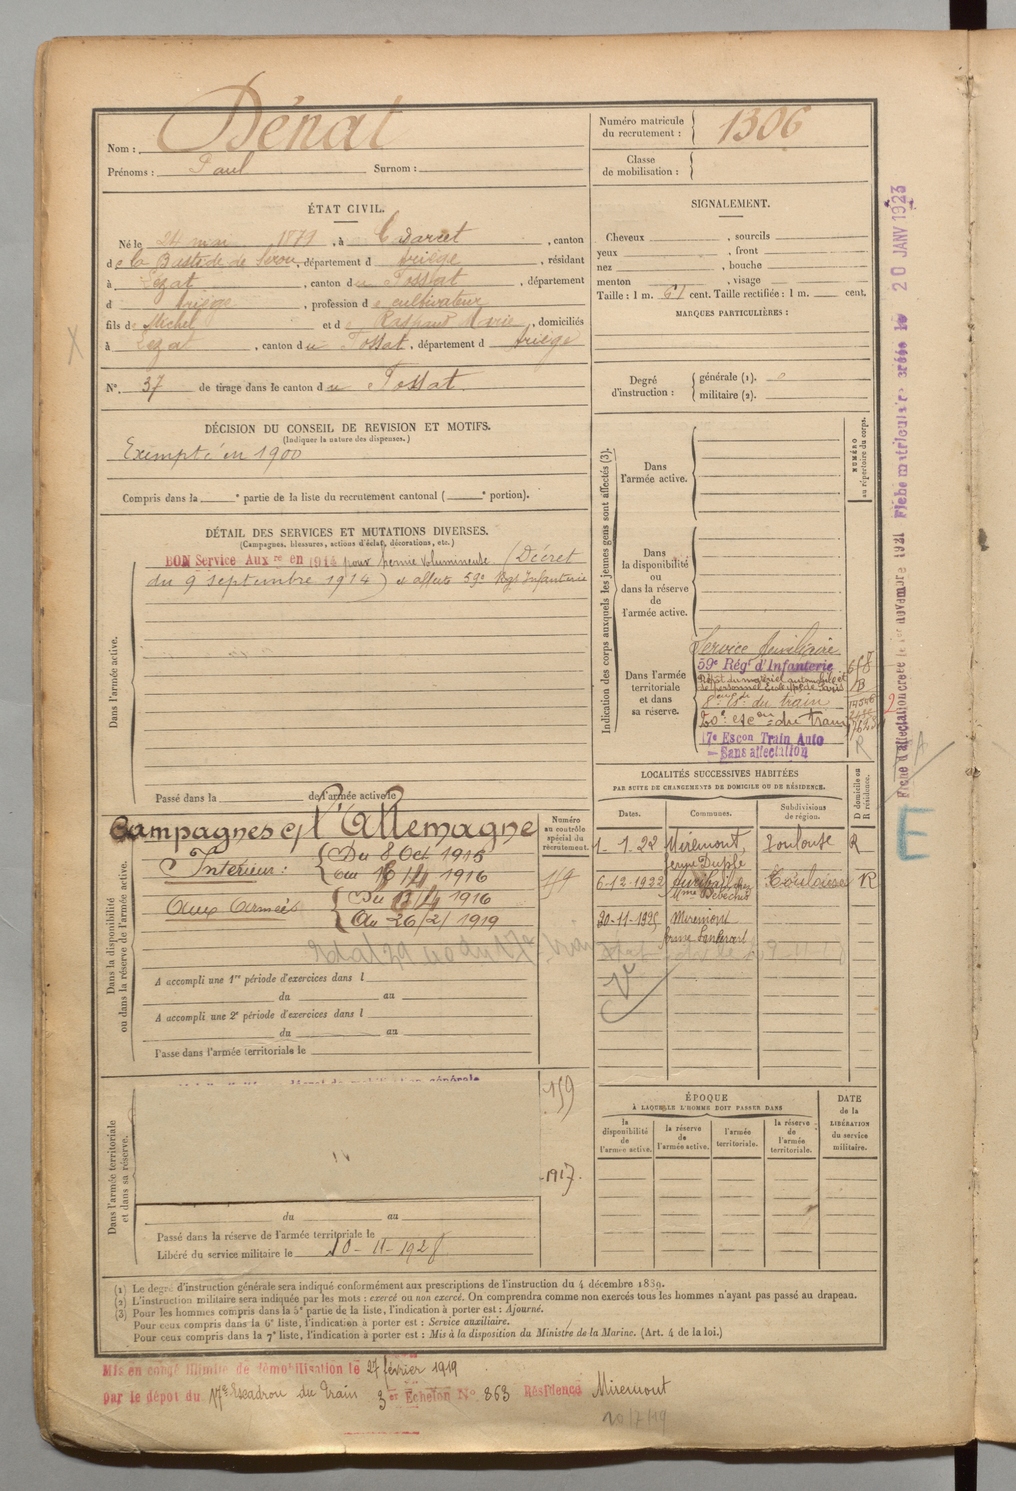 Nom : Dénat
Prénoms : Paul Surnom :
Numéro matricule du recrutement : 1306
Classe de mobilisation :
ÉTAT CIVIL.
Né le 24 mai 1879, à Cadarcet, canton
de la Bastide de Serou, département d Ariège, résidant
à Lézat, canton du Fossat, département
d Ariège, profession de cultivateur
fils de Michel et de Raspaud Marie, domiciliés
à Lezat, canton du Fossat, département d Ariège
N° 37 de tirage dans le canton du Fossat
SIGNALEMENT.
Cheveux , sourcils
yeux , front
nez , bouche
menton , visage
Taille : 1 m. 61 cent. Taille rectifiée : 1 m. cent.
MARQUES PARTICULIÈRES :
Degré d'instruction : générale (1). 0
militaire (2).
DÉCISION DU CONSEIL DE REVISION ET MOTIFS.
(Indiquer la nature des dispenses.)
Exempté en 1900
Compris dans la e partie de la liste du recrutement cantonal ( e portion).
DÉTAIL DES SERVICES ET MUTATIONS DIVERSES.
(Campagnes, blessures, actions d'éclat, décorations, etc.)
BON Service Aux re en 1914 pour hernie volumineuse (Décret
du 9 septembre 1914) et affecté 59e Régt Infanterie
Dans l'armée active.
Passé dans la de l'armée active le
Indication des corps auxquels les jeunes gens sont affectés (3).
NUMÉRO au répertoire du corps.
Dans l'armée active.
Dans la disponibilité ou dans la réserve de l'armée active.
Dans l'armée territoriale et dans sa réserve.
Service Auxiliaire
59e Régt d'Infanterie
8e Esc du train
20e esc on du train
17e Escon Train Auto
— Sans affectation
LOCALITÉS SUCCESSIVES HABITÉES
PAR SUITE DE CHANGEMENTS DE DOMICILE OU DE RÉSIDENCE.
Dates. Communes. Subdivisions de région. D domicile ou R résidence.
1-1.22 Miremont, ferme Duplé Toulouse R
6-12-1922 Toulouse R
20-11-1925 Miremont
Campagnes c/ l'Allemagne
Numéro au contrôle spécial du recrutement.
Intérieur : Du 8 Oct 1915
au 1916
Aux Armées Du 1916
Au 26/2/1919
159
Dans la disponibilité ou dans la réserve de l'armée active.
A accompli une 1re période d'exercices dans l
du au
A accompli une 2e période d'exercices dans l
du au
Passé dans l'armée territoriale le
Dans l'armée territoriale et dans sa réserve.
159
1917.
du au
Passé dans la réserve de l'armée territoriale le
Libéré du service militaire le 10-11-1928
ÉPOQUE
À LAQUELLE L'HOMME DOIT PASSER DANS
la disponibilité de l'armée active. la réserve de l'armée active. l'armée territoriale. la réserve de l'armée territoriale.
DATE de la LIBÉRATION du service militaire.
(1) Le degré d'instruction générale sera indiqué conformément aux prescriptions de l'instruction du 4 décembre 1889.
(2) L'instruction militaire sera indiquée par les mots : exercé ou non exercé. On comprendra comme non exercés tous les hommes n'ayant pas passé au drapeau.
(3) Pour les hommes compris dans la 5e partie de la liste, l'indication à porter est : Ajourné.
Pour ceux compris dans la 6e liste, l'indication à porter est : Service auxiliaire.
Pour ceux compris dans la 7e liste, l'indication à porter est : Mis à la disposition du Ministre de la Marine. (Art. 4 de la loi.)
Mis en congé illimité de démobilisation le 27 février 1919
par le dépôt du 17e Escadron du Train 3e Échelon N° 863 Résidence Miremont
20/7/19
Fiche d'affectation créée le 1er novembre 1921 Fiche matriculaire créée le 20 JANV 1923
E